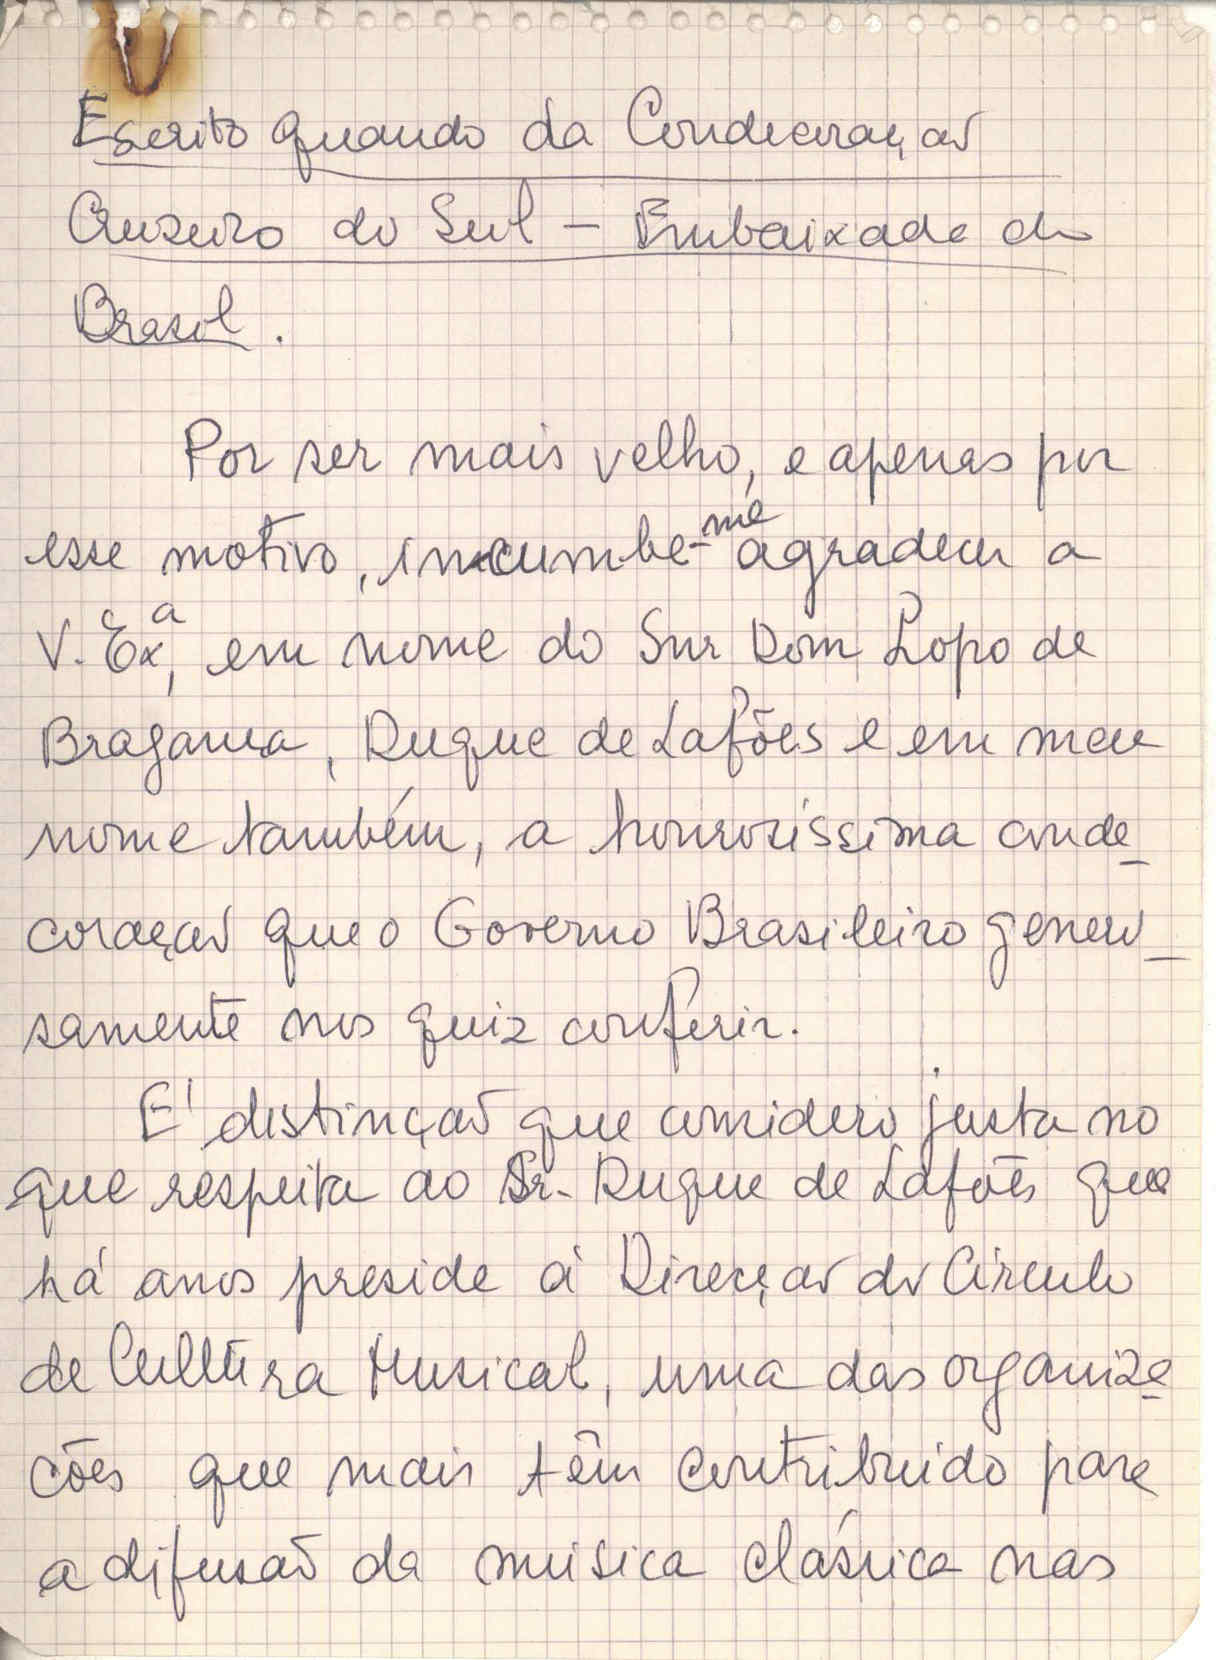 Escrito quando da Condecoração
Cruzeiro do Sul – Embaixada do
Brasil.
Por ser mais velho, e apenas por
esse motivo, incumbe-me agradecer a
V. Exª, em nome do Snr Dom Lopo de
Bragança, Duque de Lafões e em meu
nome também, a honrosíssima conde-
coração que o Governo Brasileiro genero-
samente nos quiz conferir.
E' distinção que considero justa no
que respeita ao Sr. Duque de Lafões que
há anos preside à Direcção do Círculo
de Cultura Musical, uma das organiza-
ções que mais têm contribuido para
a difusão da música clássica nas